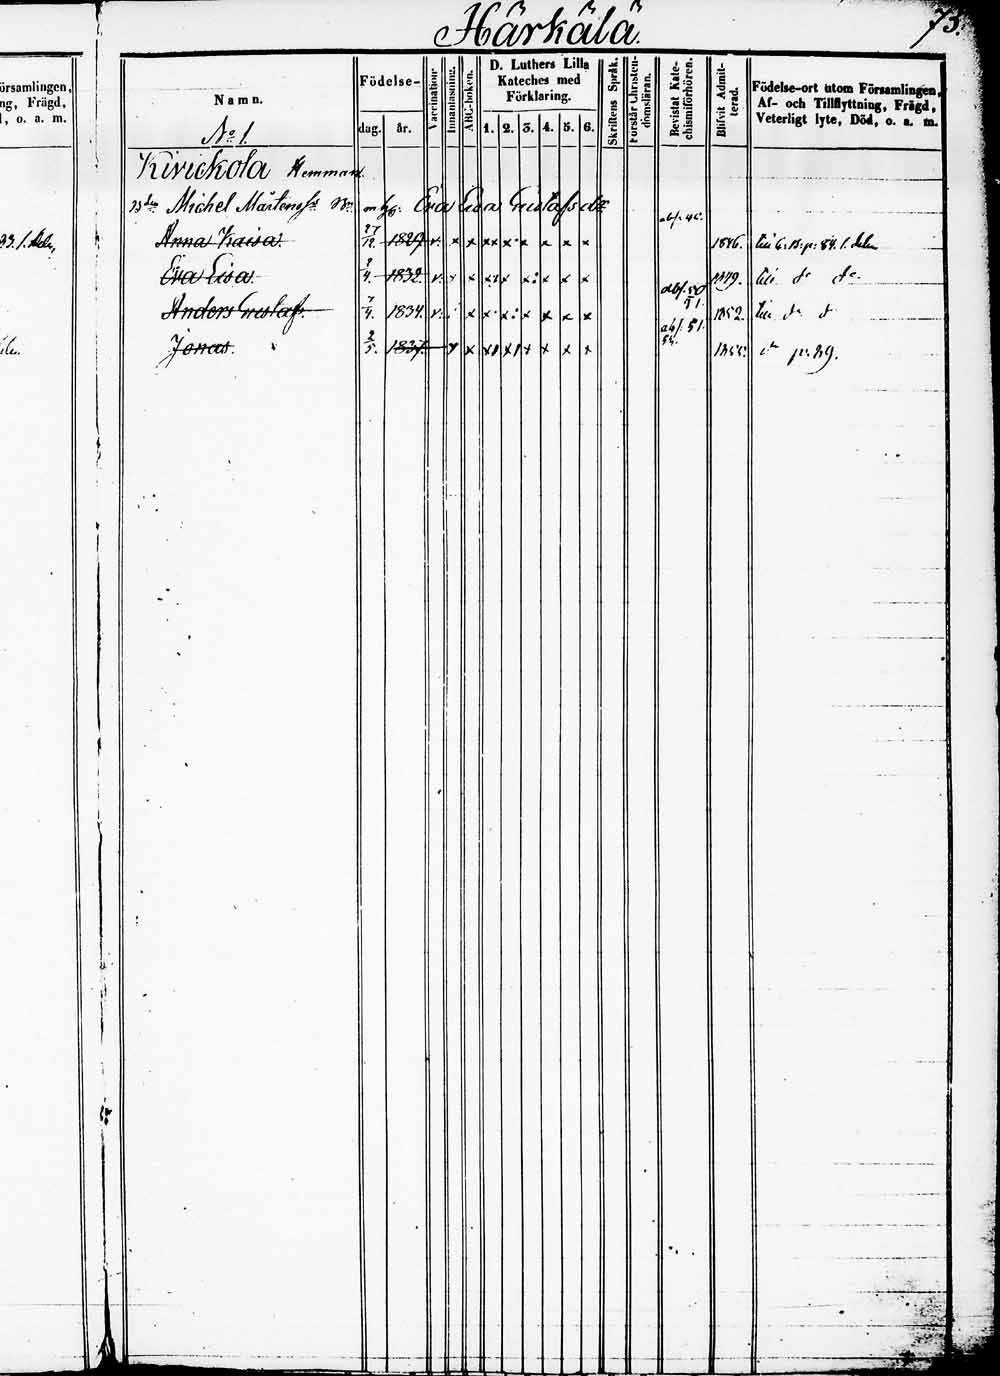 Härkälä.
73.
örsamlingen,
ng, Frägd,
l, o. a. m.
Namn.
Födelse-
dag.
år.
Vaccination.
Innanläsning.
ABC-boken.
D. Luthers Lilla
Kateches med
Förklaring.
1. 2. 3. 4. 5. 6.
Skriftens Språk.
Förstår Christen-
domsläran.
Revistat Kate-
chismiförhören.
Blifvit Admit-
terad.
Födelse-ort utom Församlingen,
Af- och Tillflyttning, Frägd,
Veterligt lyte, Död, o. a. m.
No 1.
Kirickola Hemman.
Michel Mårtenss. Eva Lisa Gustafs dr
Anna Kaisa 27/12. 1829 v. x x xx x x x x x abf. 45. 1846. p. 84. 1. delen
Eva Lisa. 2/4. 1832. v. 1849. do do
Anders Gustaf. 7/4. 1834. v. abf. 50 51. 1852. do d
Jonas. 2/5. 1837. abf. 51. 54. 1855. do p. 89.